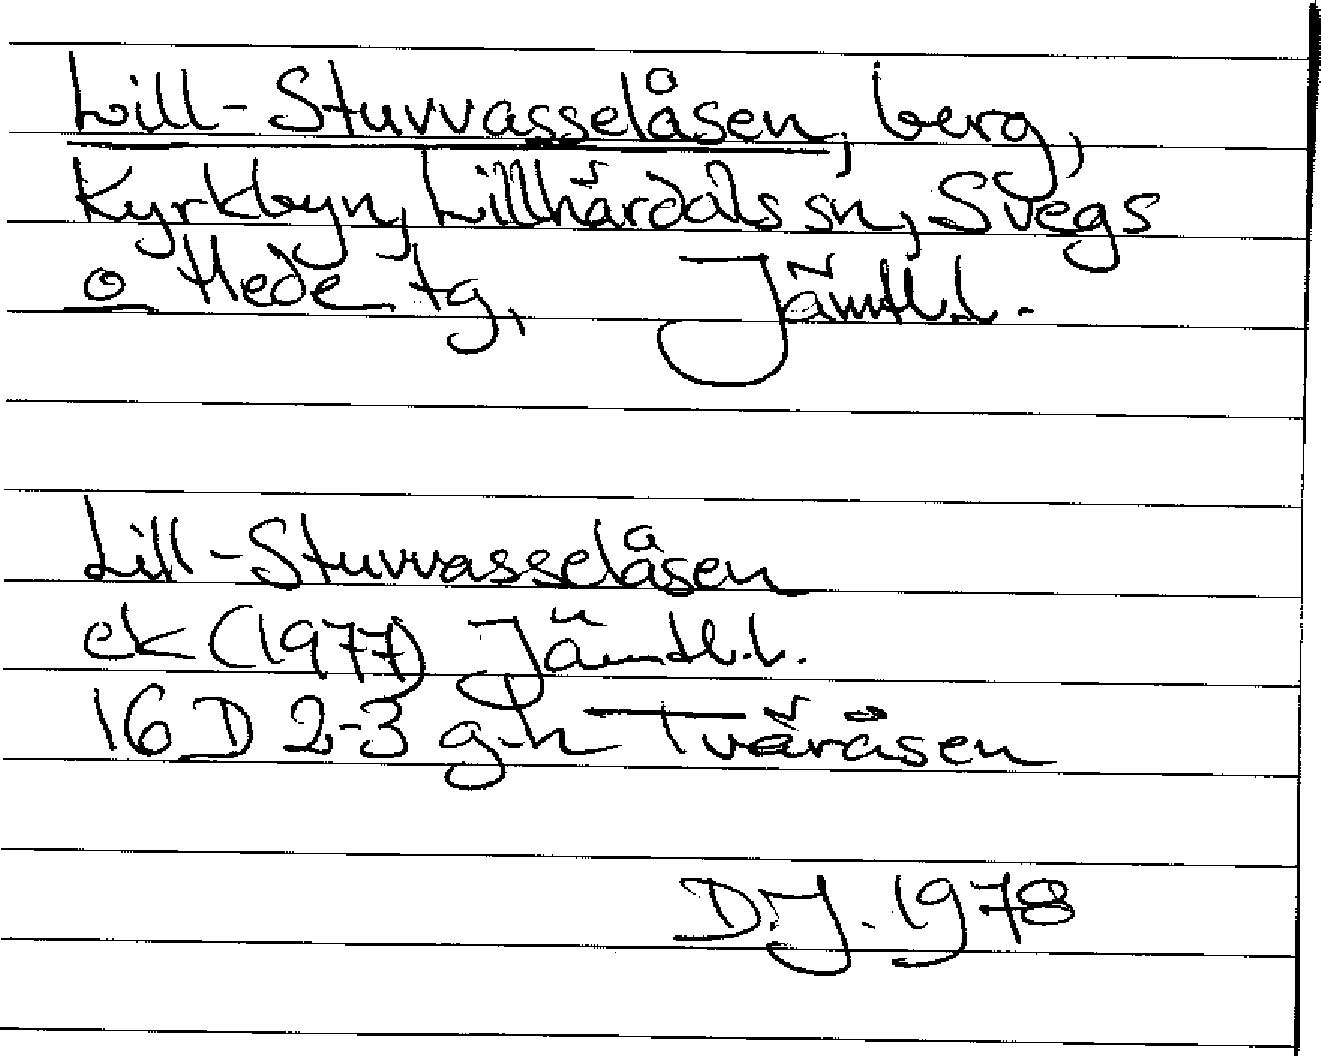 Lill-Stuvvasselåsen, berg,
Kyrkbyn, Lillhärdals sn, Svegs
o Hede tg, Jämtl.l.
Lill-Stuvvasselåsen
ek (1977) Jämtl.l.
16 D 2-3 g-h Tväråsen
D.J. 1978